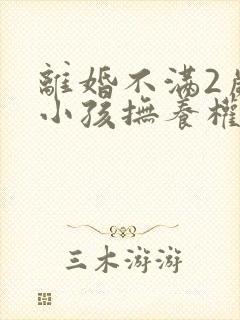 離婚不滿2歲
小孩撫養權
三木游游